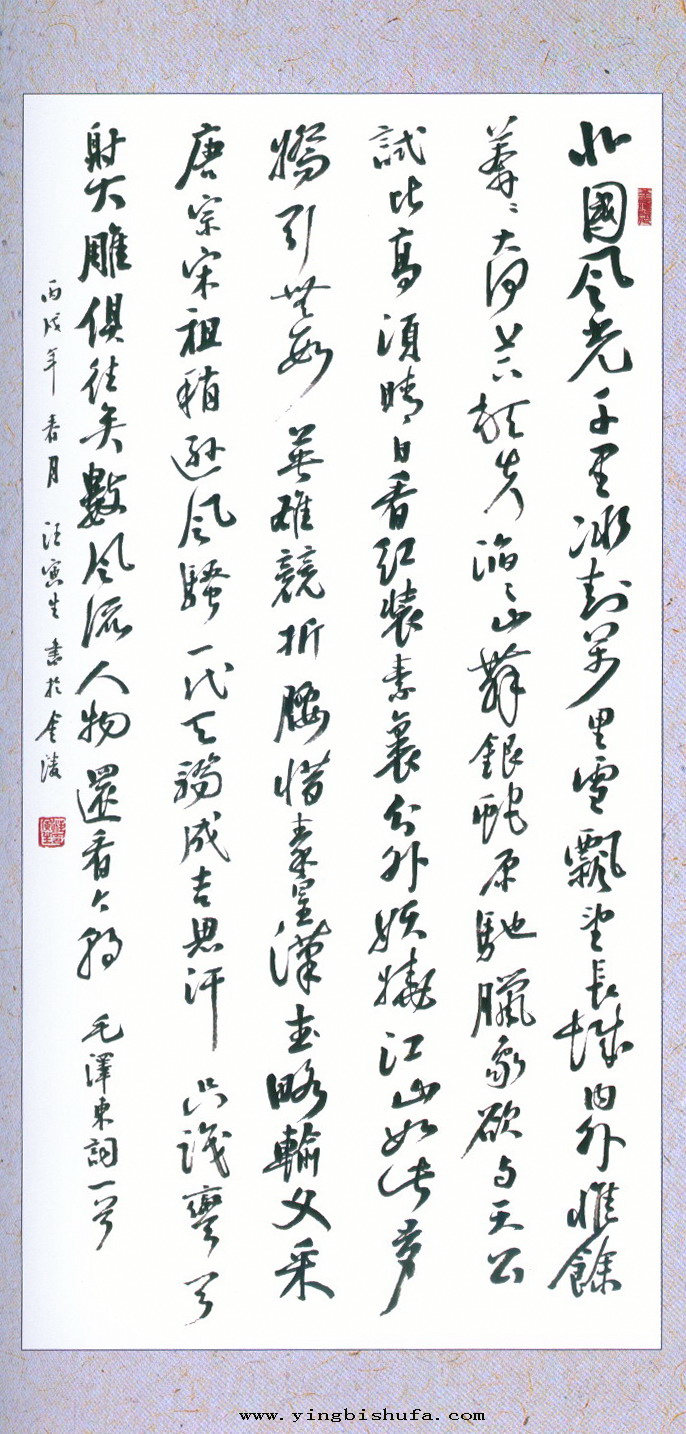 北國風光千里冰封萬里雪飄望長城內外惟餘
莽〻大河上下頓失滔〻山舞銀蛇原馳臘象欲与天公
試比高須晴日看紅裝素裹分外妖嬈江山如此多
嬌引無數英雄競折腰惜秦皇漢武略輸文采
唐宗宋祖稍遜風騷一代天驕成吉思汗只識彎弓
射大雕俱往矣數風流人物還看今朝 毛澤東詞一首
丙戌年春月 汪寅生書於金陵
www.yingbishufa.com